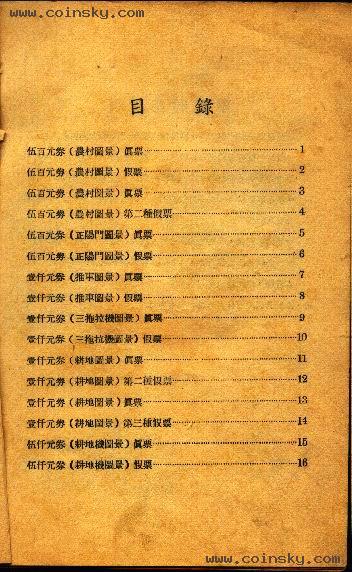 www.coinsky.com
目錄
伍百元券（農村圖景）眞票 1
伍百元券（農村圖景）假票 2
伍百元券（農村圖景）眞票 3
伍百元券（農村圖景）第二種假票 4
伍百元券（正陽門圖景）眞票 5
伍百元券（正陽門圖景）假票 6
壹仟元券（推車圖景）眞票 7
壹仟元券（推車圖景）假票 8
壹仟元券（三拖拉機圖景）眞票 9
壹仟元券（三拖拉機圖景）假票 10
壹仟元券（耕地圖景）眞票 11
壹仟元券（耕地圖景）第二種假票 12
壹仟元券（耕地圖景）眞票 13
壹仟元券（耕地圖景）第三種假票 14
伍仟元券（耕地機圖景）眞票 15
伍仟元券（耕地機圖景）假票 16
www.coinsky.com